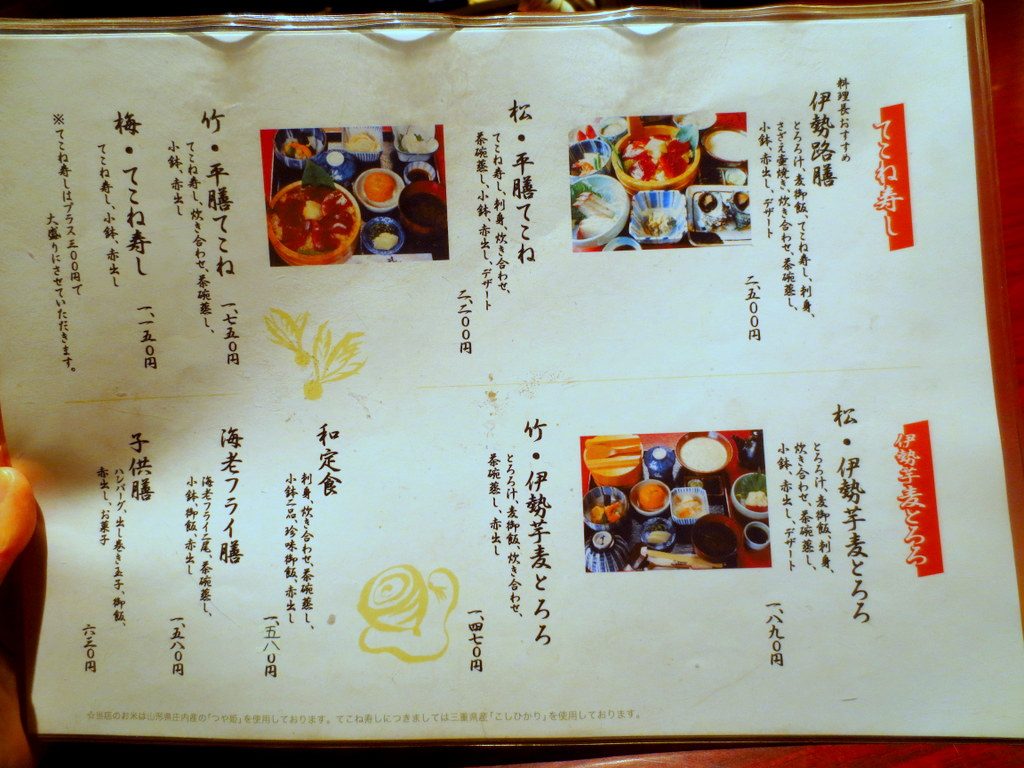 てこね寿し
料理長おすすめ
伊勢路膳
とろろ汁、麦御飯、てこね寿し、刺身、
さざえ壷焼き、炊き合わせ、茶碗蒸し、
小鉢、赤出し、デザート
二、五〇〇円
松・平膳てこね
てこね寿し、刺身、炊き合わせ、
茶碗蒸し、小鉢、赤出し、デザート
二、二〇〇円
竹・平膳てこね
てこね寿し、炊き合わせ、茶碗蒸し、
小鉢、赤出し
一、七五〇円
梅・てこね寿し
てこね寿し、小鉢、赤出し
一、一五〇円
※てこね寿しはプラス三〇〇円で
大盛りにさせていただきます。
伊勢芋麦とろろ
松・伊勢芋麦とろろ
とろろ汁、麦御飯、刺身、
炊き合わせ、茶碗蒸し、
小鉢、赤出し、デザート
一、八九〇円
竹・伊勢芋麦とろろ
とろろ汁、麦御飯、炊き合わせ、
茶碗蒸し、赤出し
一、四七〇円
和定食
刺身、炊き合わせ、茶碗蒸し、
小鉢一品、珍味、御飯、赤出し
一、五八〇円
海老フライ膳
海老フライ二尾、茶碗蒸し、
小鉢、御飯、赤出し
一、五八〇円
子供膳
ハンバーグ、出し巻き玉子、御飯、
赤出し、お菓子
六三〇円
☆当店のお米は山形県庄内産の「つや姫」を使用しております。てこね寿しにつきましては三重県産「こしひかり」を使用しております。